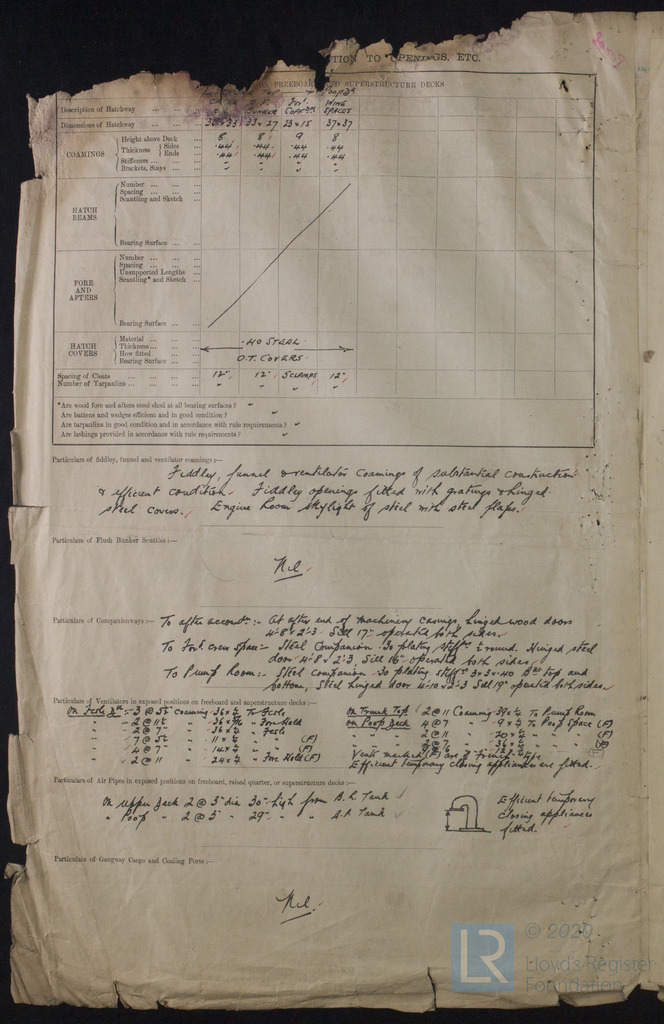 TION TO OPENINGS, ETC.
FREEBOARD AND SUPERSTRUCTURE DECKS
Description of Hatchway ... BUNKER WING SPACES
Dimensions of Hatchway ... 33 x 27 23 x 15 37 x 37
COAMINGS Height above Deck 8 8 9 8
Thickness Sides .44 .44 .44 .44
Ends .44 .44 .44 .44
Stiffeners ... " " " "
Brackets, Stays ... " " " "
HATCH BEAMS Number ...
Spacing ...
Scantling and Sketch
Bearing Surface ...
FORE AND AFTERS Number ...
Spacing ...
Unsupported Lengths
Scantling* and Sketch
Bearing Surface ...
HATCH COVERS Material ...
Thickness ... .40 STEEL
How fitted ...
Bearing Surface ... O.T. COVERS
Spacing of Cleats ... 12" 12" 5 CLAMPS 12"
Number of Tarpaulins ... " " " "
*Are wood fore and afters steel shod at all bearing surfaces?
Are battens and wedges efficient and in good condition?
Are tarpaulins in good condition and in accordance with rule requirements?
Are lashings provided in accordance with rule requirements?
Particulars of fiddley, funnel and ventilator coamings:—
Fiddley, funnel & ventilator coamings of substantial construction
& efficient condition. Fiddley openings fitted with gratings & hinged
steel covers. Engine Room skylight of steel with steel flaps.
Particulars of Flush Bunker Scuttles:—
Nil
Particulars of Companionways:— To after accomdn:- At after end of machinery casings, hinged wood doors
4'-8 x 2'-3 Sill 17" operated both sides.
To Ford. crew space:- Steel Companion .30 plating stiffd round. Hinged steel
door 4'-8 x 2'-3, Sill 16" operated both sides.
To Pump Room:- Steel companion .30 plating stiffd 3 x 3 x .40 top and
bottom, Steel hinged door 4'-10 x 2'-3 Sill 19" operated both sides
Particulars of Ventilators in exposed positions on freeboard and superstructure decks:—
On Fcsle Dk:- 3 @ 5" coaming 36 x To Fcsle
- 2 @ 36 x " Fore Hold
- 2 @ 7" 36 x " Fcsle
" 7 @ 5" 11 x " (F)
" 4 @ 7" 14 x " (F)
" 2 @ 11" 24 x " Fore Hold (F)
On Trunk Top 2 @ 11 Coaming 39 x To Pump Room
on Poop Deck 4 @ 7" 9 x To Poop Space (F)
" " 2 @ 11 " 20 x " " (F)
" " 2 @ 7 " 36 x " " (F)
Vents marked (F) are of French type
Efficient temporary closing appliances are fitted.
Particulars of Air Pipes in exposed positions on freeboard, raised quarter, or superstructure decks:—
On upper deck 2 @ 3" dia 30" high from Tank
" Poop " 2 @ 5" " 29" " " Tank
Efficient temporary
closing appliances
fitted.
Particulars of Gangway Cargo and Coaling Ports:—
Nil.
LR © 2020
Lloyd's Register
Foundation